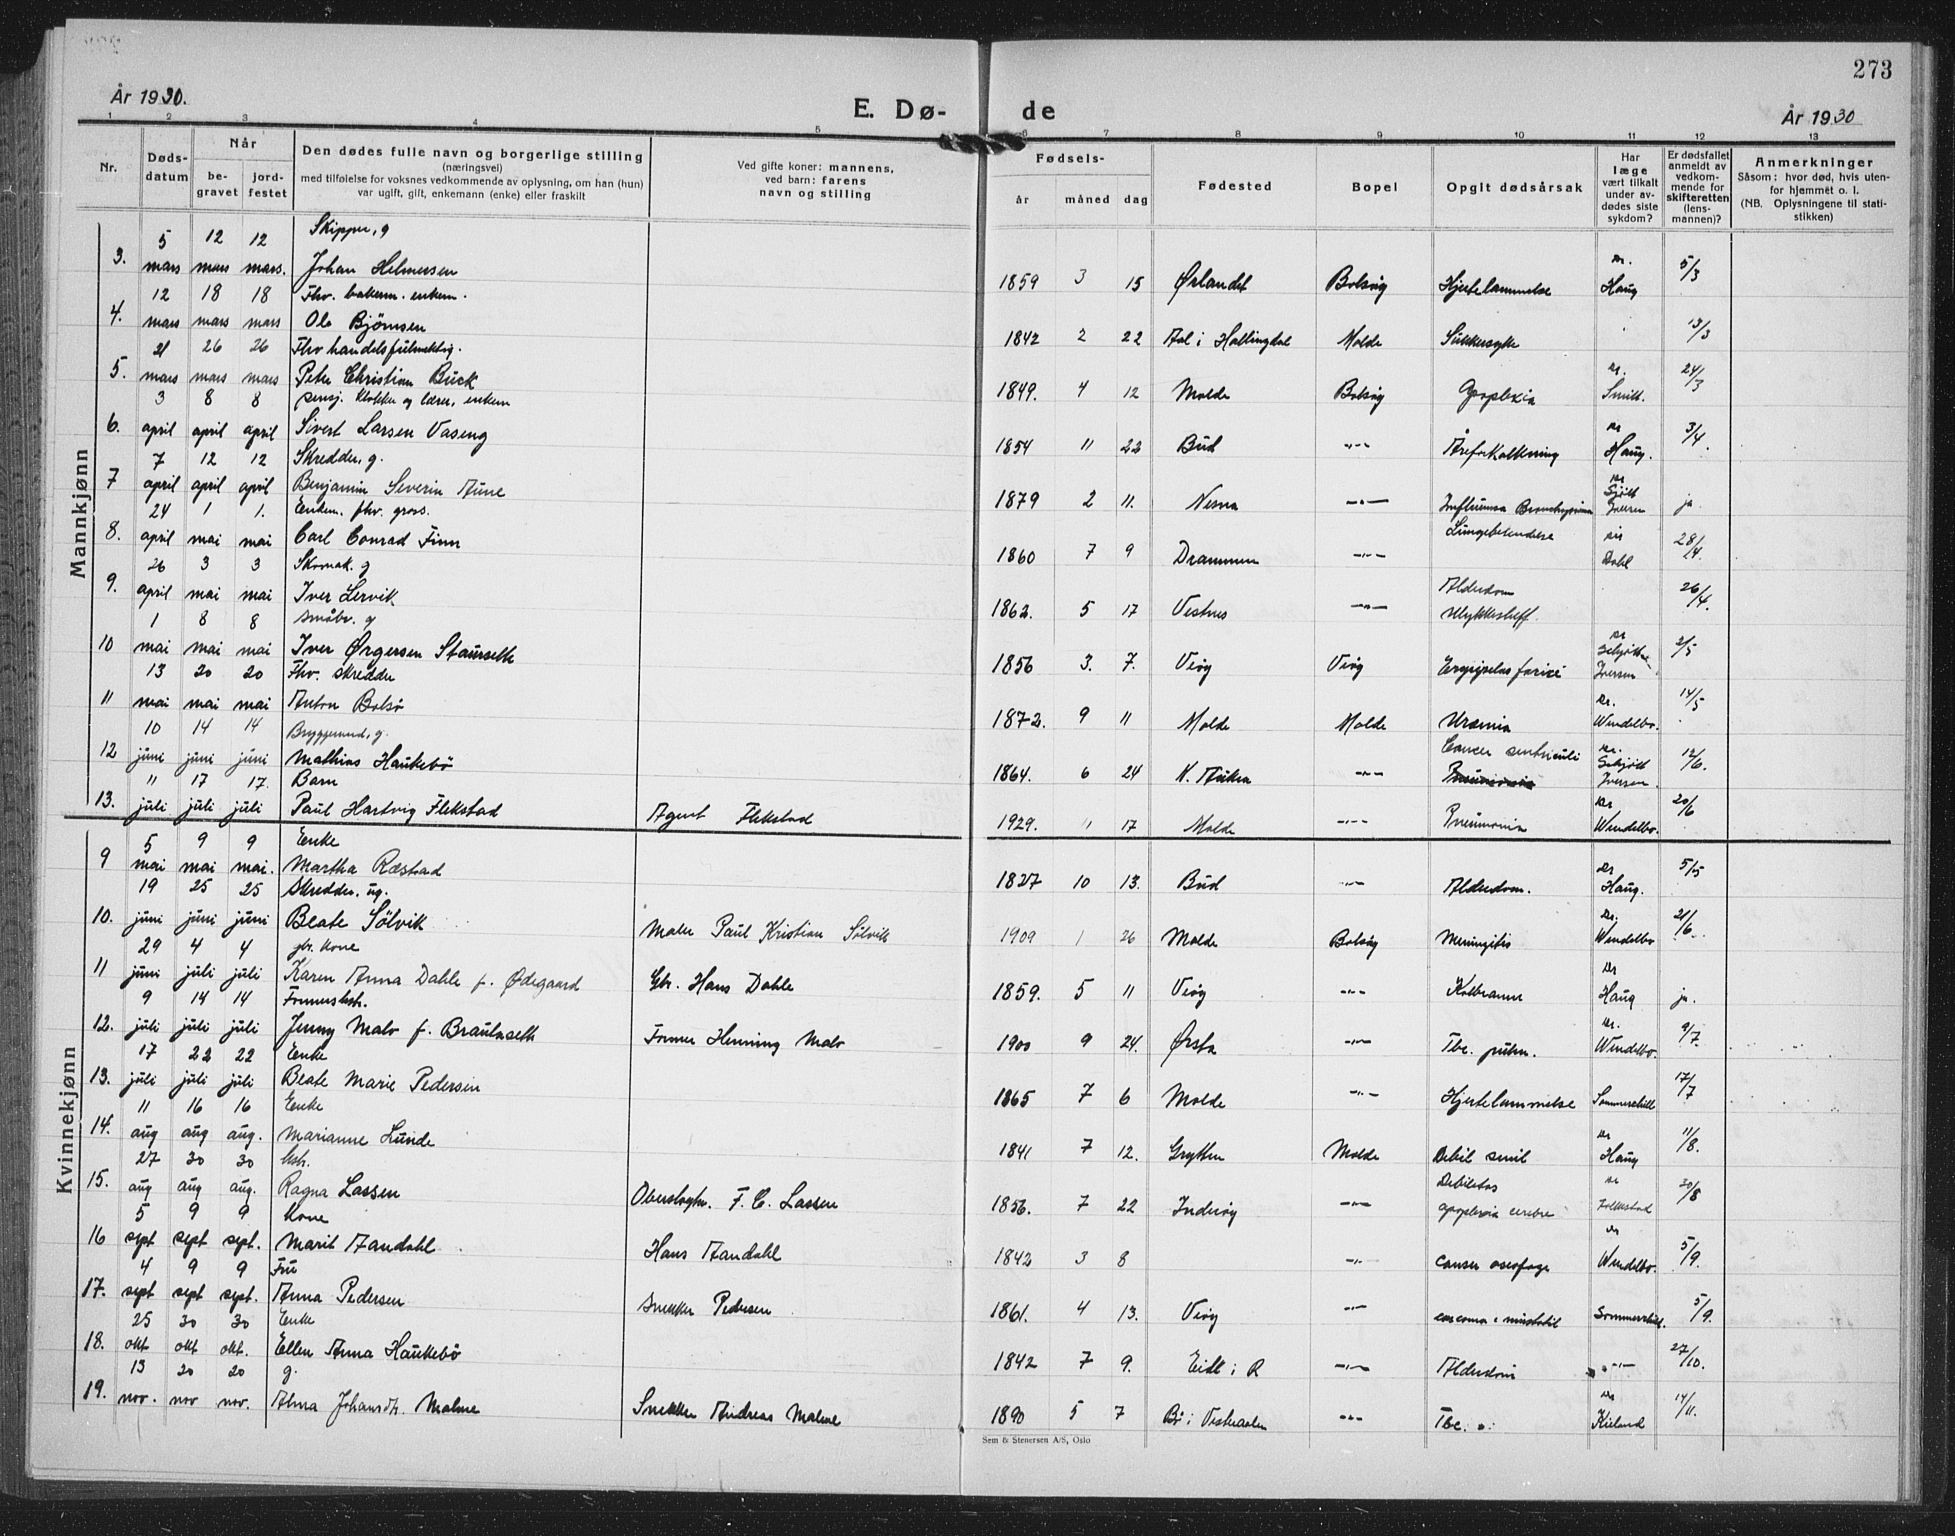 273
År 1930.
E. Dø-
de
År 1930
1 2 3 4 5 6 7 8 9 10 11 12 13
Nr.
Døds-
datum
Når
be-
gravet
jord-
festet
Den dødes fulle navn og borgerlige stilling
(næringsvei)
med tilføielse for voksnes vedkommende av oplysning, om han (hun)
var ugift, gift, enkemann (enke) eller fraskilt
Ved gifte koner: mannens,
ved barn: farens
navn og stilling
Fødsels-
år måned dag
Fødested
Bopel
Opgit dødsårsak
Har
læge
vært tilkalt
under av-
dødes siste
sykdom?
Er dødsfallet
anmeldt av
vedkom-
mende for
skifteretten
(lens-
mannen)?
Anmerkninger
Såsom: hvor død, hvis uten-
for hjemmet o. l.
(NB. Oplysningene til stati-
stikken)
Mannkjønn
5 12 12 Skipper, g
3. mars mars mars. Johan Helmersen 1859 3 15 Ørlandet Bolsøy Hjertelammelse Dr. Haug 5/3
12 18 18 Fhv. bakerm. enkem.
4. mars mars mars Ole Bjørnsen 1842 2 22 Aal i Hallingdal Molde Sukkersyke 13/3
21 26 26 Fhv handelsfulmektig.
5. mars mars mars Peter Christian Buck 1849. 4 12 Molde Bolsøy Apoplexia Dr. Smitt. 24/3
3 8 8 pensj. klokker og lærer, enkem
6. april april april Sivert Larsen Vaseng 1854 11 22 Bud -"- Åreforkalkning Dr Haug. 3/4
7 12 12 Skredder, g.
7 april april april Benjamin Severin Aune 1879 2 11. Nesna -"- Influensa Dr Iversen ja
24 1 1. Enkem. fhv. gross.
8. april mai mai Carl Conrad Finn 1860 7 9 Drammen -"- Lungebetendelse Dahl 28/4.
26 3 3 Skomak. g
9. april mai mai Iver Lervik 1862. 5 17 Vestnes -"- Alderdom Ulykkestilf. 26/4.
1 8 8 småbr. g
10 mai mai mai Iver Ørgersen Staurseth 1856 3. 7. Veøy Veøy Dr Iversen 2/5
13 20 20 Fhv. skredder
11 mai mai mai Anton Bolsø 1872. 9 11 Molde Molde Uremia Dr. Wendelbo. 14/5
10 14 14 Bryggemand, g.
12 juni juni juni Mathias Haukebø 1864. 6 24 N. Aukra -"- Cancer ventriculi Dr. Iversen. 12/6.
11 17 17. Barn
13. juli juli juli Paul Hartvig Flekstad Agent Flekstad 1929. 11 17 Molde -"- Pneumonia Dr Wendelbo. 20/6
Kvinnekjønn
5 9 9 Enke
9 mai mai mai. Martha Ræstad 1827 10 13. Bud -"- Alderdom. Dr Haug. 5/5
19 25 25 Skredder, ug.
10. juni juni juni Beate Sølvik Maler Paul Kristian Sølvik 1909 1 26 Molde Bolsøy Meningitis Dr. Wendelbo 21/6.
29 4 4 gbr. kone
11 juni juli juli Karen Anna Dahle f. Ødegaard Gbr. Hans Dahle 1859. 5 11 Veøy -"- Koldbrann Dr Haug ja.
9 14 14 Formershstr.
12. juli juli juli Jenny Malo f. Brautaseth Former Henning Malo 1900 9 24. Ørsta -"- Tbc. pulm. Dr. Wendelbo. 9/7.
17 22 22 Enke
13. juli juli juli Beate Marie Pedersen 1865 7 6 Molde -"- Hjertelammelse Sommerschild 17/7
11 16 16 Enke
14. aug aug aug. Marianne Lunde 1841 7 12. Grytten Molde Debil senil Dr Haug 11/8.
27 30 30 hstr.
15. aug aug aug. Ragna Lassen F. C. Lassen 1856. 7 22 Inderøy -"- Debilitas apoplexia cerebri Dr Folkestad 30/8
5 9 9 Kone
16 sept sept sept. Marit Aandahl Hans Aandahl 1842 3 8 -"- Dr Wendelbo. 5/9.
4 9 9 Fru
17. sept sept sept. Anna Pedersen Snekker Pedersen 1861. 4 13. Veøy -"- Sommerschild. 5/9.
25 30 30 Enke
18. okt okt okt. Ellen Anna Haukebø 1842 7 9. Eid i R -"- Alderdom -"- 27/10.
13 20 20 g.
19. nov. nov nov. Alma Johansdt. Malme Snekker Andreas Malme 1890 5 7 Bø i Vesteraalen -"- Tbc. Dr Kieland 14/11.
Sem & Stenersen A/S, Oslo